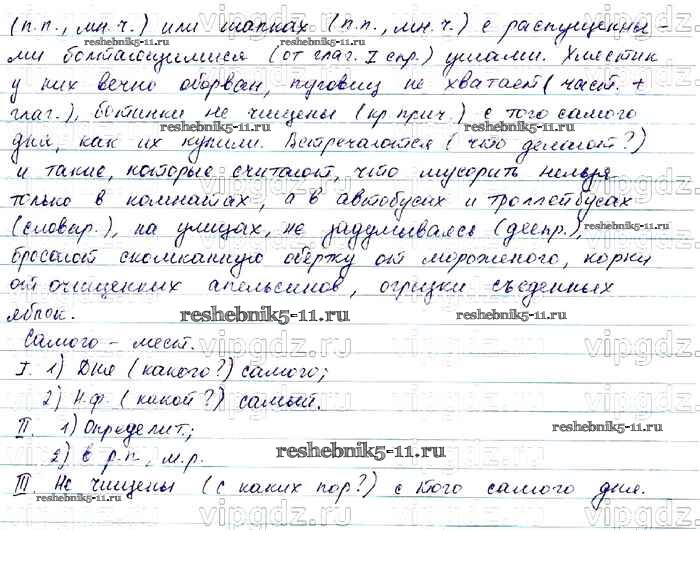 (п.п., мн.ч.) или шапках (п.п., мн.ч.) с распущенны-
ми болтающимися (от глаг. I спр.) ушами. Хлястик
у них вечно оборван, пуговиц не хватает (част. +
глаг.), ботинки не чищены (кр. прич.) с того самого
дня, как их купили. Встречаются (что делают?)
и такие, которые считают, что мусорить нельзя
только в комнатах, а в автобусах и троллейбусах
(словар.), на улицах, не задумываясь (деепр.),
бросают скомканную обёртку от мороженого, корки
от очищенных апельсинов, огрызки съеденных
яблок.
Самого - мест.
I. 1) Дня (какого?) самого;
2) Н.ф. (какой?) самый.
II. 1) Определит.;
2) в р.п., м.р.
III. Не чищены (с каких пор?) с того самого дня.
reshebnik5-11.ru
vipgdz.ru